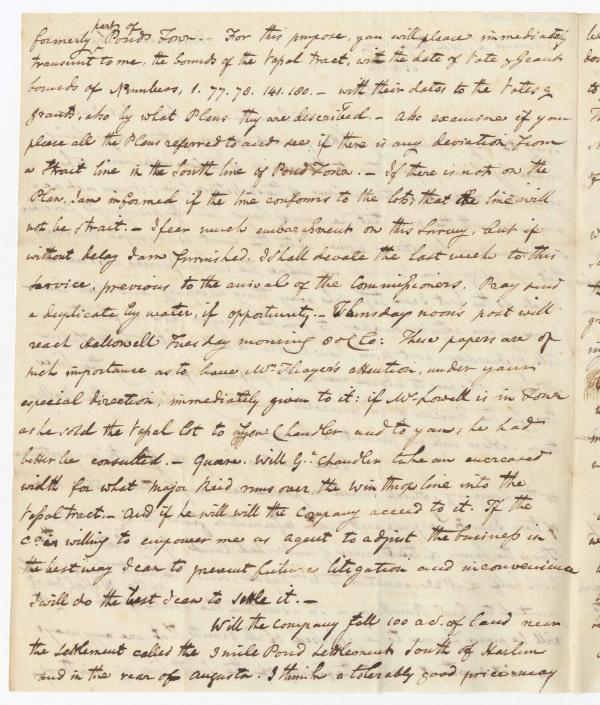 parts of
formerly Ponds Town. – For this purpose, you will please immediately
transmit to me, the bounds of the Vasal tract, with the date of Vote & Grant
bounds of Numbers, 1. 77. 78. 141. 180. – with their dates to the Votes &
grants, also by what Plans they are described. – Also examine if you
please all the Plans referred to and see if there is any deviation from
a strait line in the South line of Pond Town. – If there is not on the
Plan, I am informed if the line conforms to the lots, that the line will
not be strait. – I fear much embarassment on this Survey, but if
without delay I am furnished, I shall devote the last week to this
service, previous to the arrival of the Commissioners. Pray send
a duplicate by water, if opportunity. – Thursday noon's post will
reach Hallowell Tuesday morning 8 oClo: These papers are of
such importance as to have Mr. Thayer's attention, under your
especial direction, immediately given to it: if Mr. Lowell is in Town
as he sold the Vasal lot to Gen Chandler and to you; he had
better be consulted. – Quere. Will G.l Chandler take an encreased
width for what Major Reid runs over the Winthrop line into the
Vassal tract. – And if he will will the Company acceed to it. If the
Co. is willing to empower me as agent to adjust the business in
the best way I can to prevent future litigation and inconvenience
I will do the best I can to settle it. –
Will the Company sell 100 ac.s. of land near
the settlement called the 3 mile Pond settlement South of Harlem
and in the rear of Augusta. I think a tolerably good price may